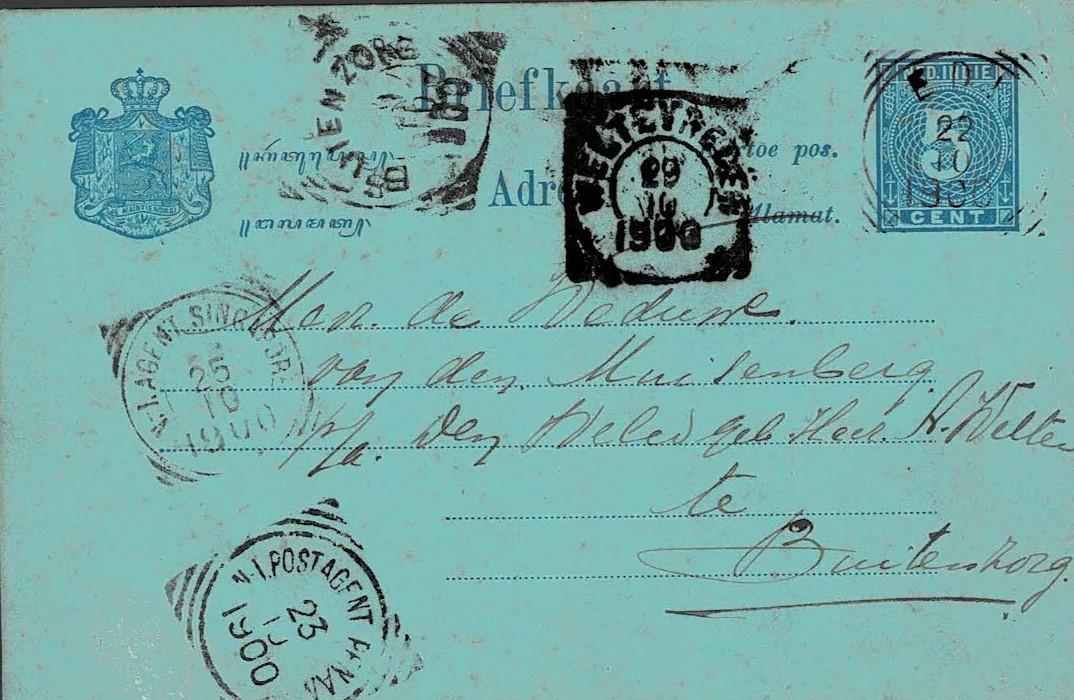 Briefkaart
NED. INDIE
5
CENT
EDI
22
10
1900
BUITENZORG
WELTEVREDEN
29
10
1900
toe pos.
Adres
Alamat.
JE MAINTIENDRAI
N.I. AGENT. SINGAPORE
25
10
1900
N.I. POSTAGENT PENANG
23
10
1900
Mevr. de Weduwe
van den Muisenberg.
p/a. Den Weled geb Heer. A. Welter
te
Buitenzorg.